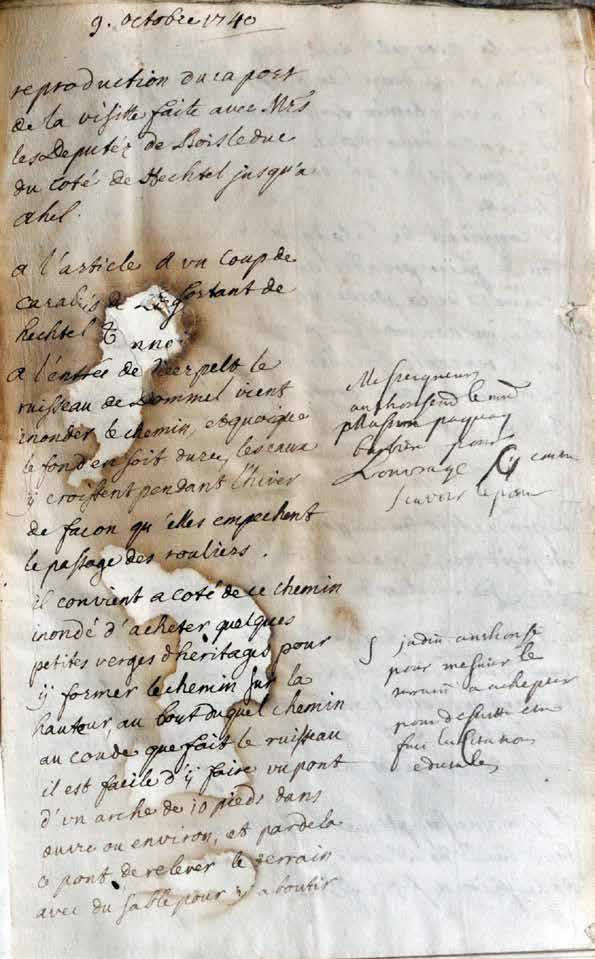 9. octobre 1740
reproduction du raport
de la visitte faite avec Mrs
les Deputéz de Boisleduc
du coté de Hechtel jusqu'a
Ahel.
a l'article d'un coup de
carabis de sortant de
hechtel
a l'entrée de Neerpelt le
ruisseau de Dommel vient
inonder le chemin, et quoique
le fond en soit dure, les eaux
ÿ croissent pendant l'hiver
de façon qu'elles empechent
le passage des rouliers.
il convient a coté de ce chemin
inondé d'acheter quelques
petites verges d'héritages pour
ÿ former le chemin sur la
hauteur, au bout duquel chemin
au coude que fait le ruisseau
il est facile d'ÿ faire un pont
d'un arche de 10 pieds dans
œuvre ou environ, et par dela
ce pont de relever le terrain
avec du sable pour ÿ aboutir
Messeigneurs
authorisent le
pour
L'ouvrage
pour mesurer le
terrain a achepter
pour